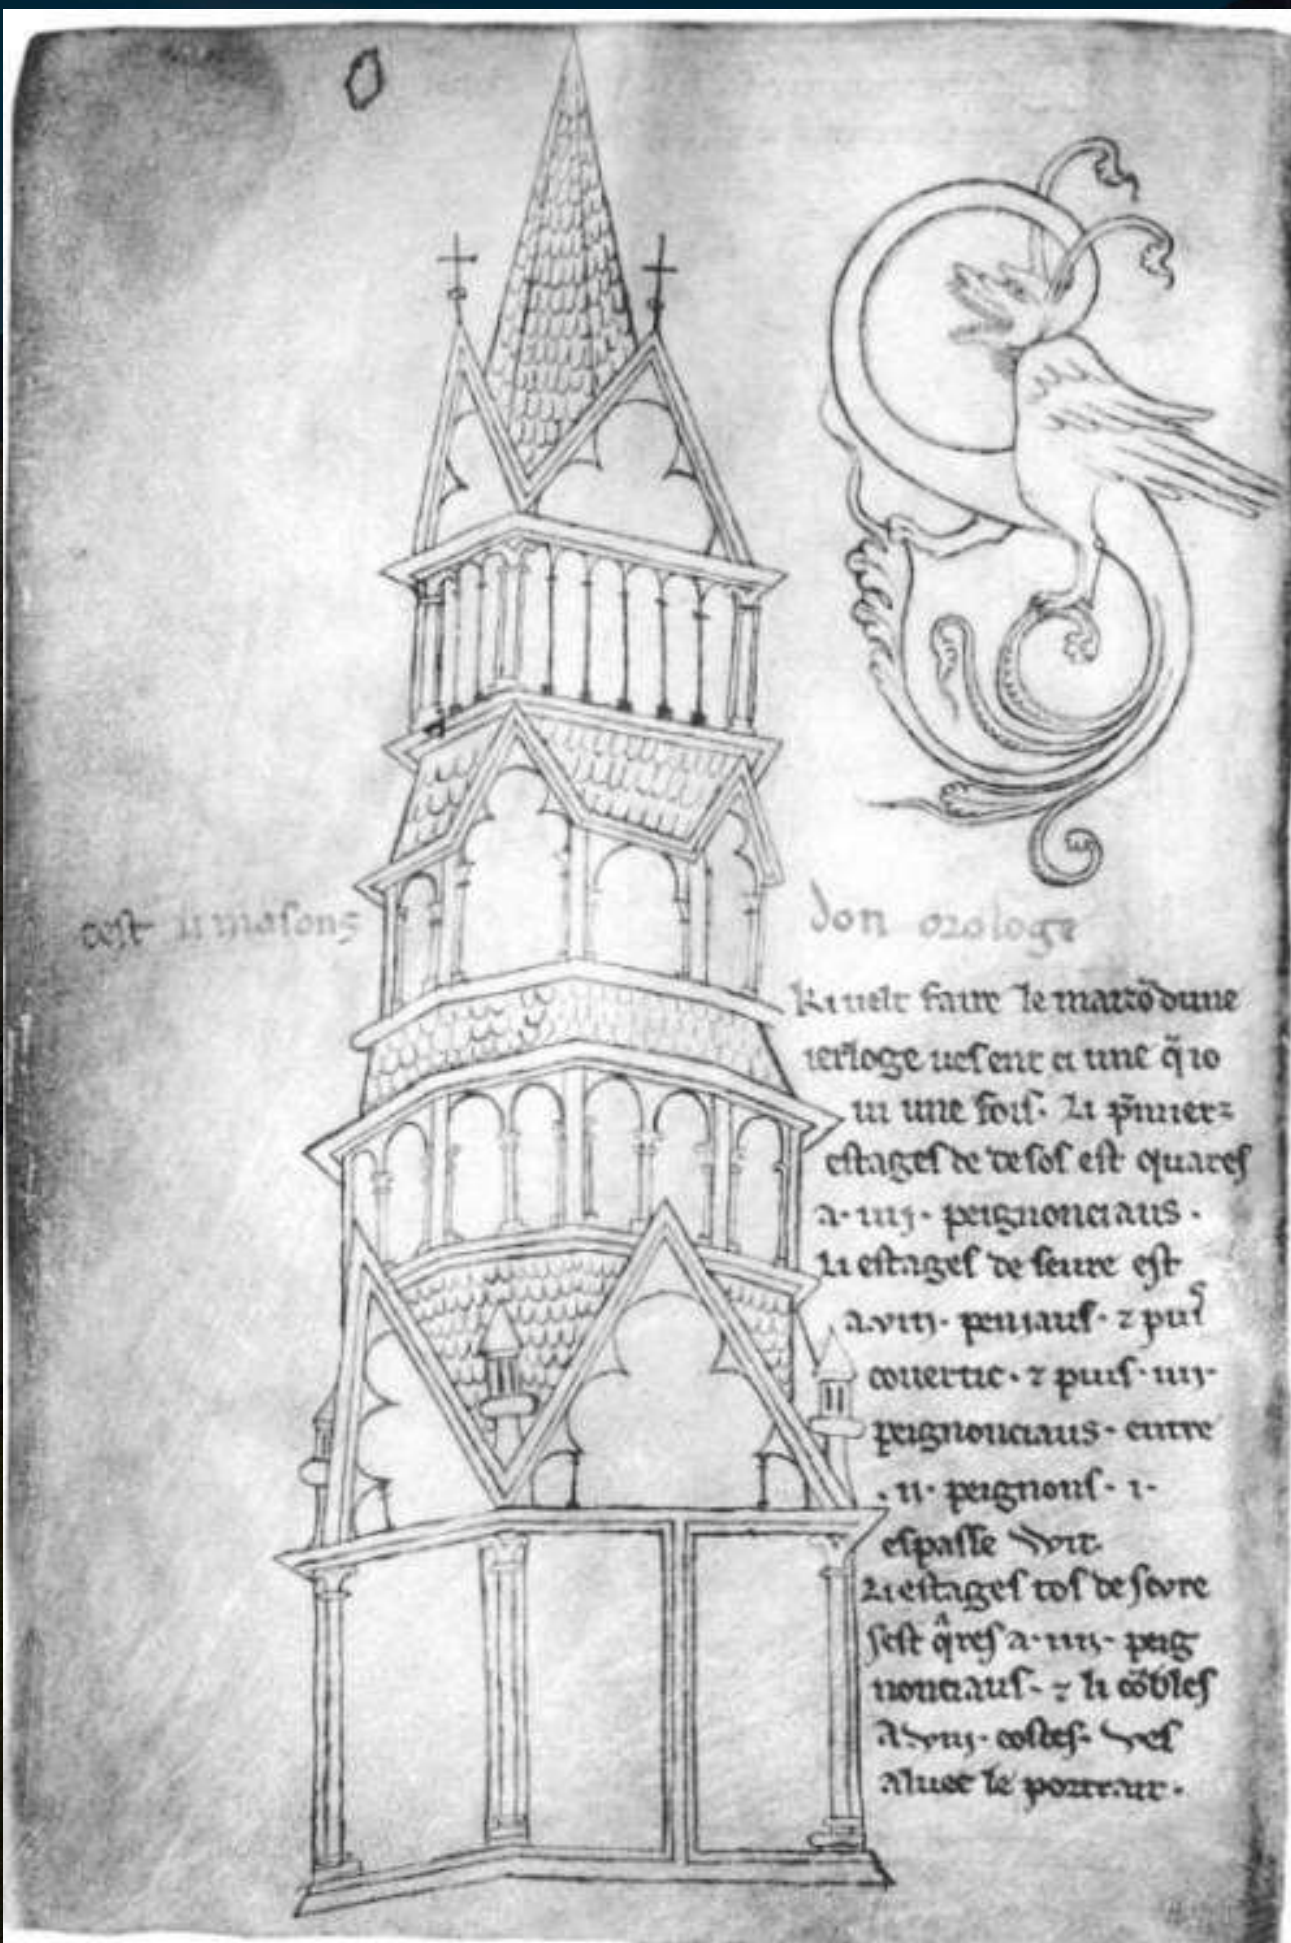 cest li masons don orologe
Ki velt faire le maizõ dune
ierloge ves ent ci une q̃ io
vi une fois. Li p̃miers
estages de desos est quares
a .iiij. peignonciaus.
Li estages de seure est
a .viij. peniaus. ⁊ puis
covertic. ⁊ puis .iiij.
peignonciaus. entre
.ii. peignons. i.
espasse wit.
Li estages tos de sevre
sest q̃res a .iiij. peig
nonciaus. ⁊ li cõbles
a .viij. costes. ves
aluec le portrait.